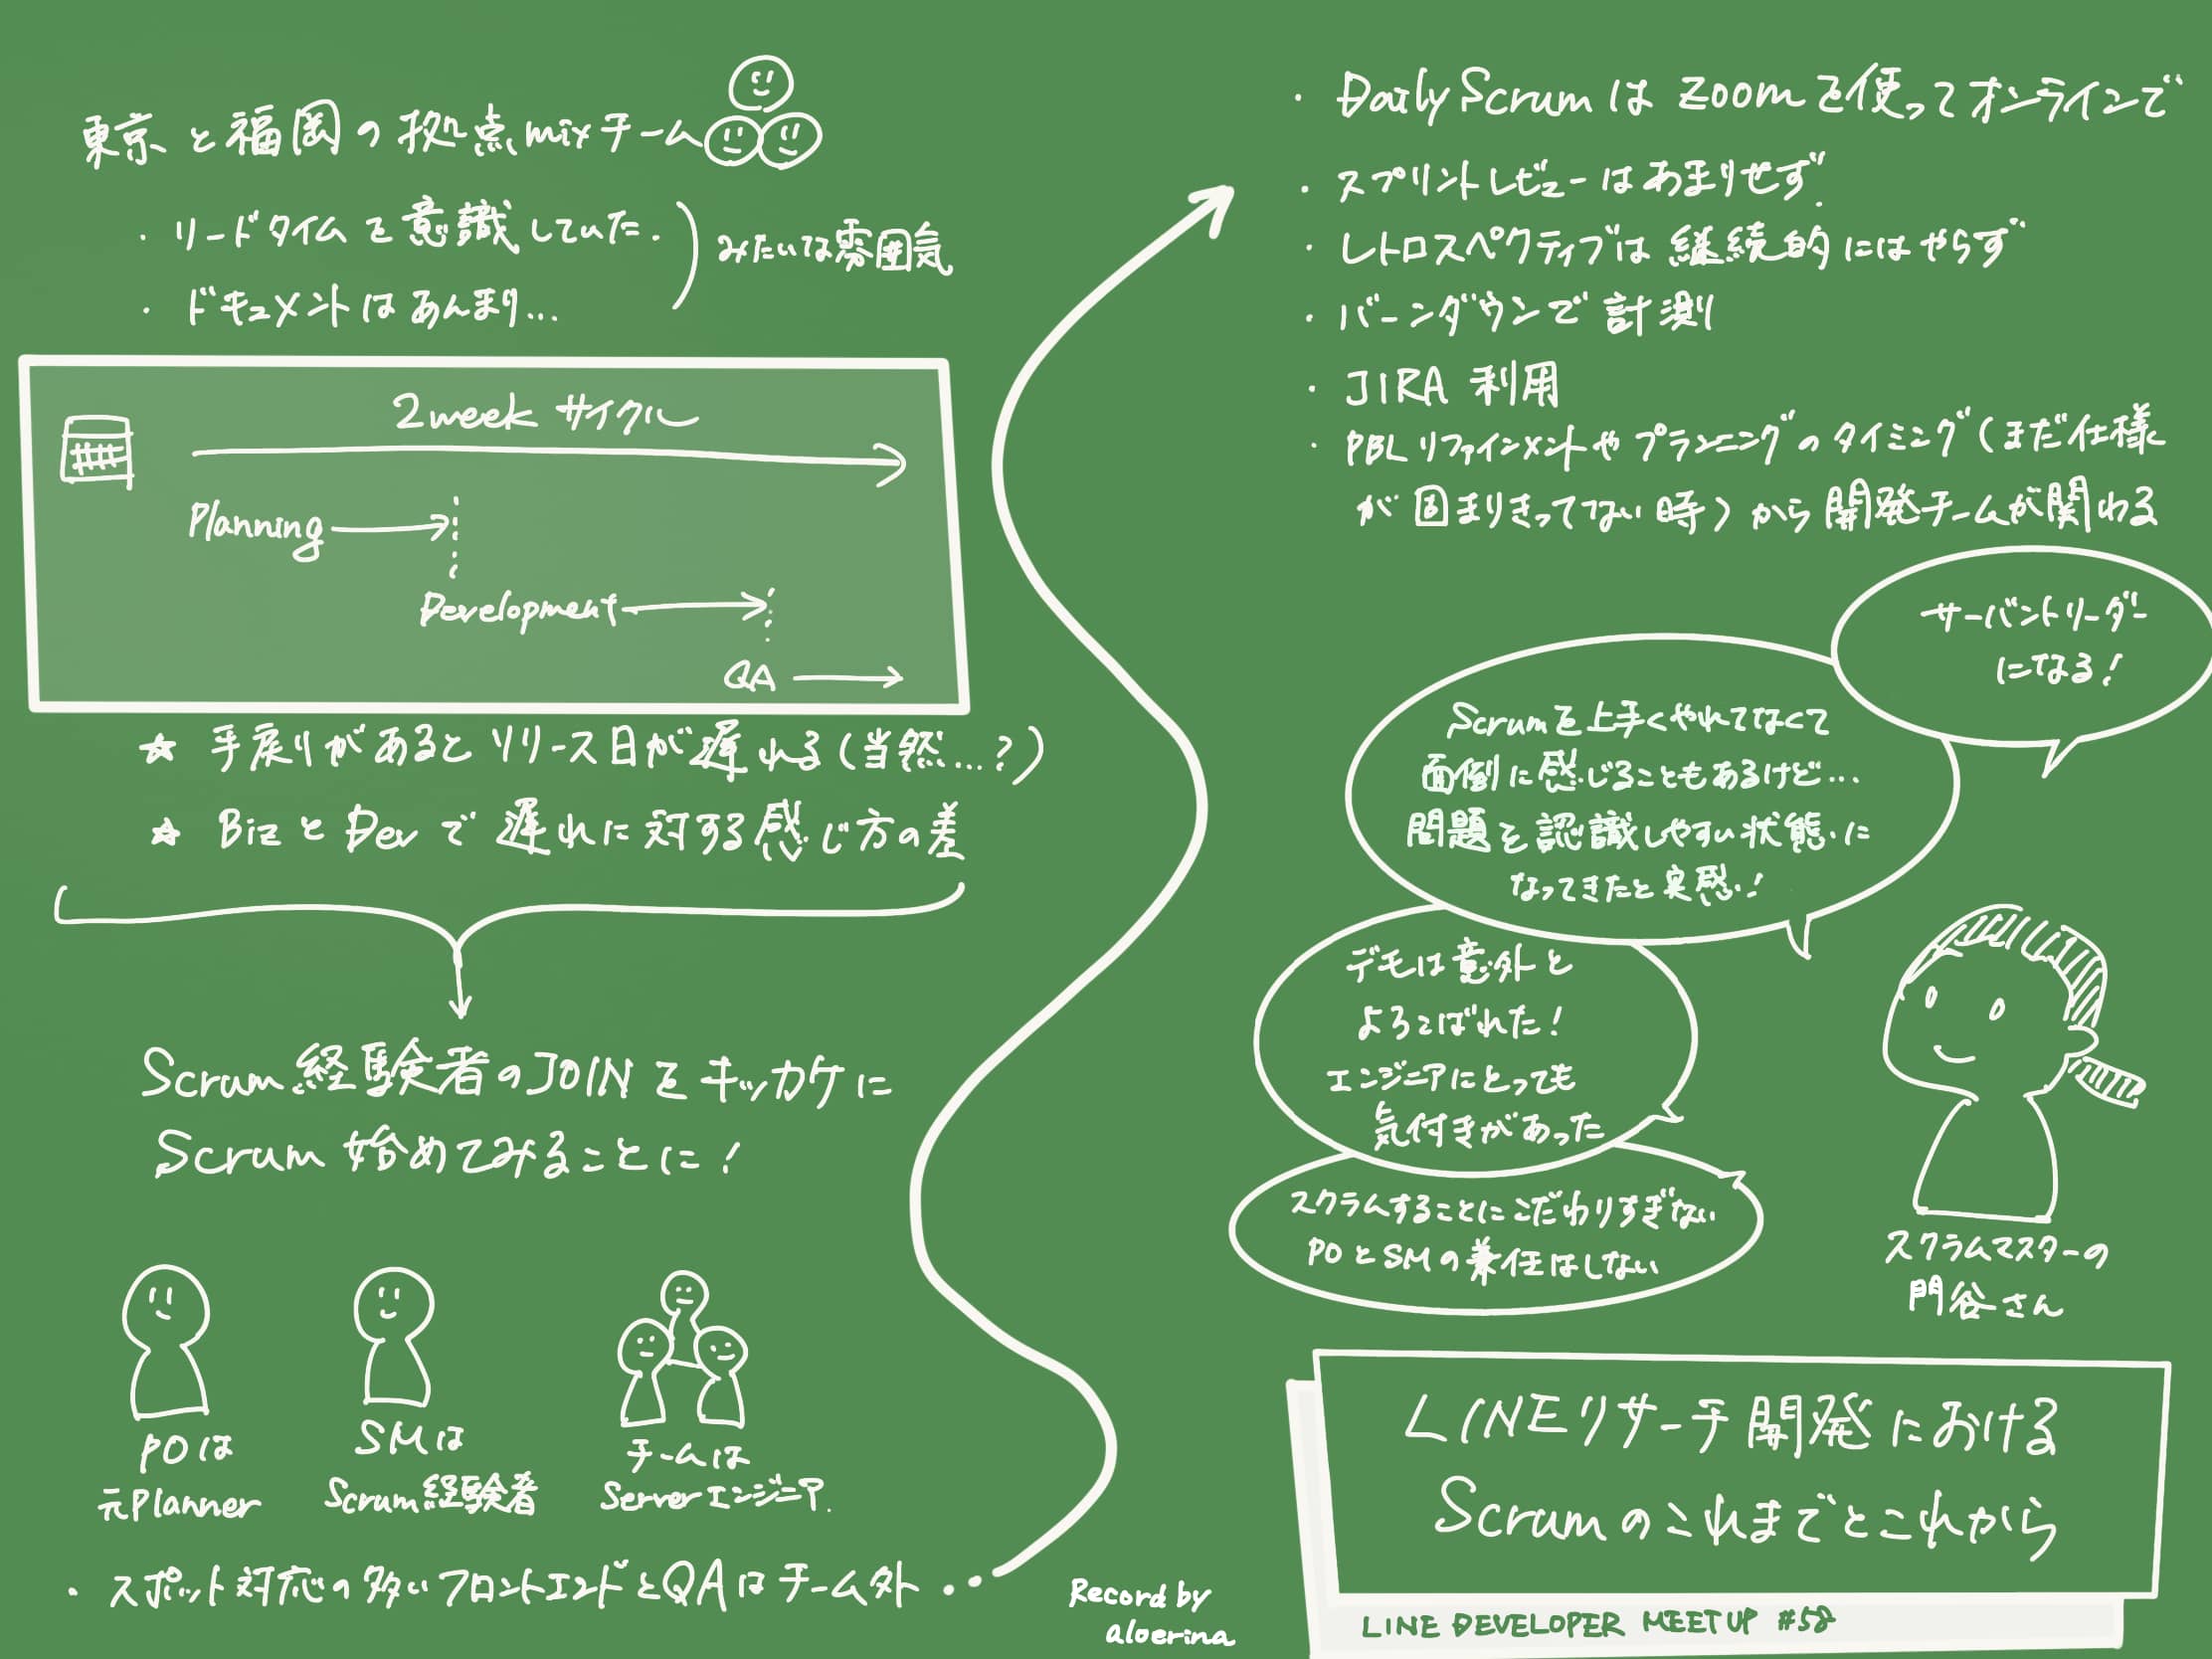 東京と福岡の拠点mixチーム
・リードタイムを意識していた.
・ドキュメントはあんまり...
みたいな雰囲気
2weekサイクル
Planning
Development
QA
☆ 手戻りがあるとリリース日が遅れる(当然...?)
☆ BizとDevで遅れに対する感じ方の差
Scrum経験者のJOINをキッカケに
Scrum始めてみることに!
POは
元Planner
SMは
Scrum経験者
チームは
Serverエンジニア.
・スポット対応の多いフロントエンドとQAはチーム外
・Daily Scrumはzoomを使ってオンラインで
・スプリントレビューはあまりせず.
・レトロスペクティブは継続的にはやらず
・バーンダウンで計測
・JIRA利用
・PBLリファインメントやプランニングのタイミング(まだ仕様
が固まりきってない時)から開発チームが関わる
サーバントリーダー
になる!
Scrumを上手くやれてなくて
面倒に感じることもあるけど...
問題を認識しやすい状態に
なってきたと実感!
デモは意外と
よろこばれた!
エンジニアにとっても
気付きがあった
スクラムすることにこだわりすぎない
POとSMの兼任はしない
スクラムマスターの
門谷さん
LINEリサーチ開発における
Scrumのこれまでとこれから
LINE DEVELOPER MEETUP #58
Record by
aloerina